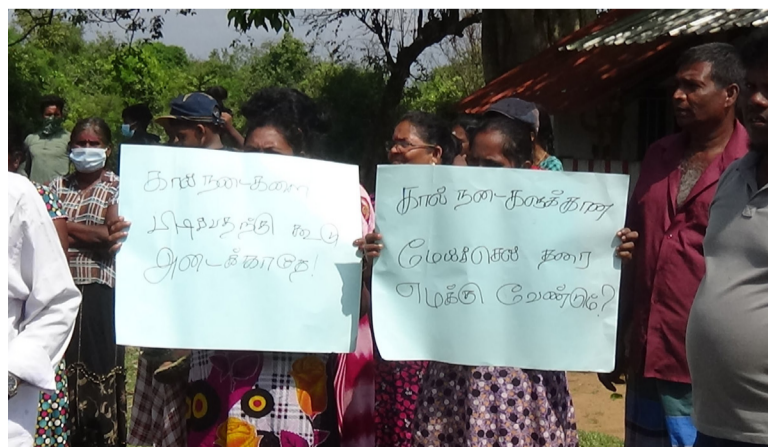 கால் நடைகளை
கூடு
அடைக்காதே!
கால் நடைகளுக்கான
மேய்ச்சல் தரை
எமக்கு வேண்டும்?